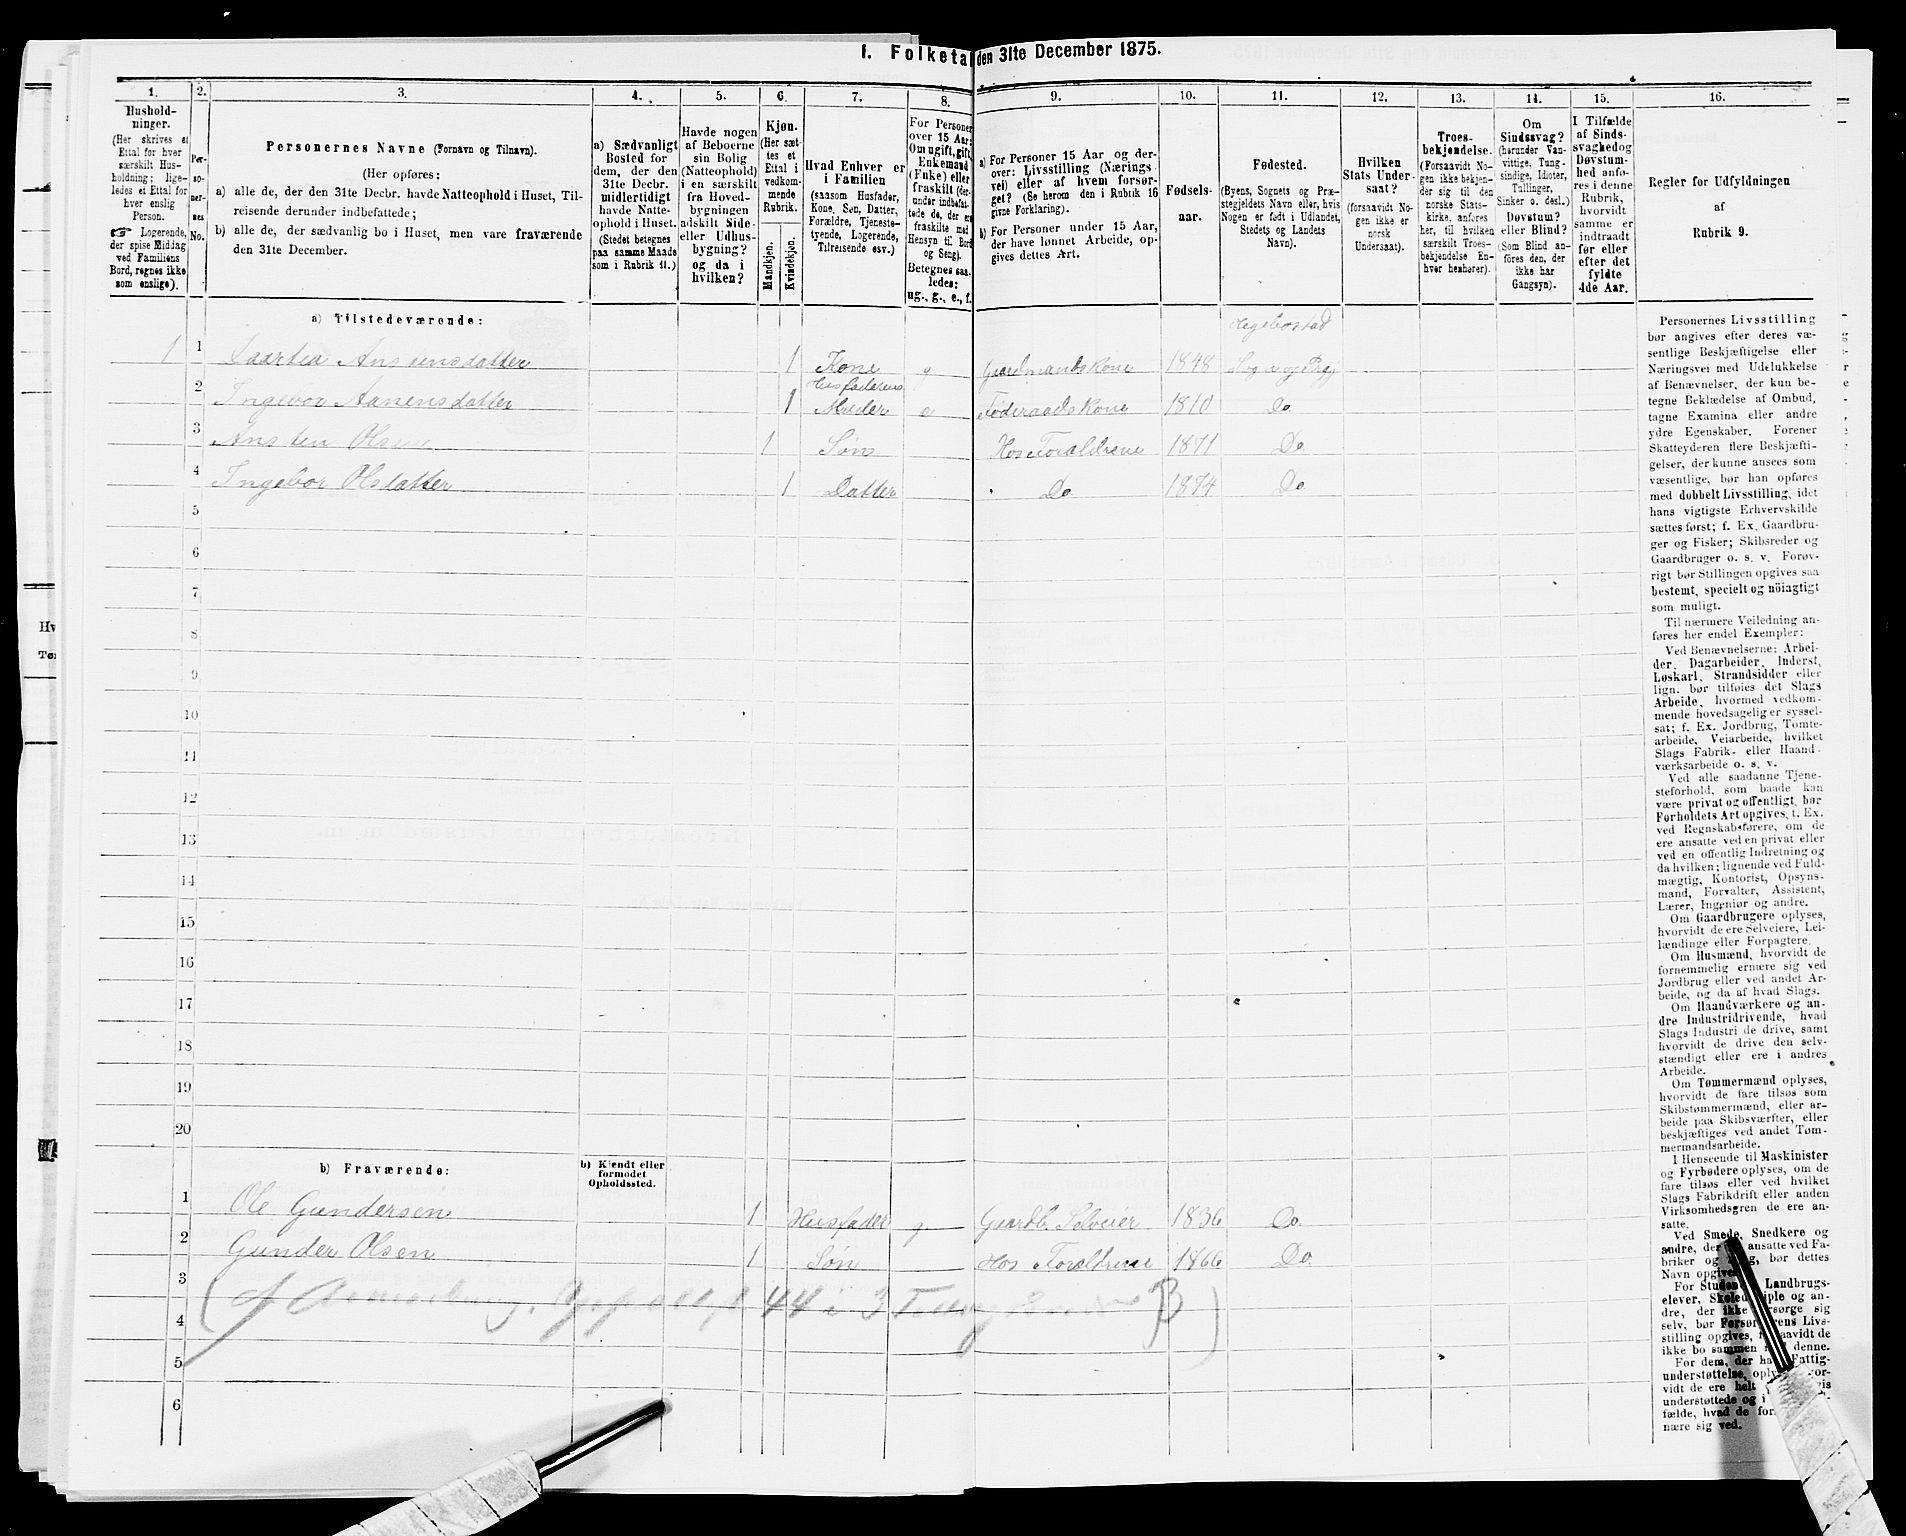 1. Folketal den 31te December 1875.
1.
Hushold-
ninger.
(Her skrives et
Ettal for hver
særskilt Hus-
holdning; lige-
ledes et Ettal for
hver enslig
Person.
☞ Logerende,
der spise Middag
ved Familiens
Bord, regnes ikke
som enslige).
2.
Per-
so-
ner-
nes
No.
3.
Personernes Navne (Fornavn og Tilnavn).
(Her opføres:
a) alle de, der den 31te Decbr. havde Natteophold i Huset, Til-
reisende derunder indbefattede;
b) alle de, der sædvanlig bo i Huset, men vare fraværende
den 31te December.
4.
a) Sædvanligt
Bosted for
dem, der den
31te Decbr.
midlertidigt
havde Natte-
ophold i Huset.
(Stedet betegnes
paa samme Maade
som i Rubrik 11.)
5.
Havde nogen
af Beboerne
sin Bolig
(Natteophold)
i en særskilt
fra Hoved-
bygningen
adskilt Side-
eller Udhus-
bygning?
og da i
hvilken?
6.
Kjøn.
(Her sæt-
tes et
Ettal i
vedkom-
mende
Rubrik.
Mandkjøn.
Kvindekjøn.
7.
Hvad Enhver er
i Familien
(saasom Husfader,
Kone, Søn, Datter,
Forældre, Tjeneste-
tyende, Logerende,
Tilreisende osv.)
8.
For Personer
over 15 Aar:
Om ugift, gift,
Enkemand
(Enke) eller
fraskilt (der-
under indbefat-
tede de, der ere
fraskilte med
Hensyn til Bord
og Seng).
Betegnes saa-
ledes:
ug., g., e., f.
9.
a) For Personer 15 Aar og der-
over: Livsstilling (Nærings-
vei) eller af hvem forsør-
get? (Se herom den i Rubrik 16
givne Forklaring).
b) For Personer under 15 Aar,
der have lønnet Arbeide, op-
gives dettes Art.
10.
Fødsels-
aar.
11.
Fødested.
(Byens, Sognets og Præ-
stegjeldets Navn eller, hvis
Nogen er født i Udlandet,
Stedets og Landets
Navn).
12.
Hvilken
Stats Under-
saat?
(forsaavidt No-
gen ikke er
norsk
Undersaat).
13.
Troes-
bekjendelse.
(Forsaavidt No-
gen ikke bekjen-
der sig til den
norske Stats-
kirke, anføres
her, til hvilken
særskilt Troes-
bekjendelse En-
hver henhører).
14.
Om
Sindssvag?
(herunder Van-
vittige, Tung-
sindige, Idioter,
Tullinger,
Sinker o. desl.)
Døvstum?
eller Blind?
(Som Blind an-
føres den, der
ikke har
Gangsyn).
15.
I Tilfælde
af Sinds-
svaghed og
Døvstum-
hed anfø-
res i denne
Rubrik,
hvorvidt
samme er
indtraadt
før eller
efter det
fyldte
4de Aar.
16.
Regler for Udfyldningen
af
Rubrik 9.
a) Tilstedeværende:
Hegebostad
1 1 Ansensdatter 1 Kone g Gaardmandskone 1848 Sogn og Prgj
Husfaderens
2 Ingebor Aanensdatter 1 Moder e Føderaadskone 1810 Do
3 Ansten Olsen 1 Søn Hos Forældrene 1871 Do
4 Ingebor Olsdatter 1 Datter Do 1874 Do
5
6
7
8
9
10
11
12
13
14
15
16
17
18
19
20
b) Fraværende:
b) Kjendt eller
formodet
Opholdssted.
1 Ole Gundersen 1 Husfader g Gaardb. Selveier 1836 Do.
2 Gunder Olsen 1 Søn Hos Forældrene 1866 Do
3
44 i 3 B)
4
5
6
Personernes Livsstilling
bør angives efter deres væ-
sentlige Beskjæftigelse eller
Næringsvei med Udelukkelse
af Benævnelser, der kun be-
tegne Beklædelse af Ombud,
tagne Examina eller andre
ydre Egenskaber. Forener
Skatteyderen flere Beskjæfti-
gelser, der kunne ansees som
væsentlige, bør han opføres
med dobbelt Livsstilling, idet
hans vigtigste Erhvervskilde
sættes først; f. Ex. Gaardbru-
ger og Fisker; Skibsreder og
Gaardbruger o. s. v. Forøv-
rigt bør Stillingen opgives saa
bestemt, specielt og nöiagtigt
som muligt.
Til nærmere Veiledning an-
føres her endel Exempler:
Ved Benævnelserne: Arbei-
der, Dagarbeider, Inderst,
Løskarl, Strandsidder eller
lign. bør tilføies det Slags
Arbeide, hvormed vedkom-
mende hovedsagelig er syssel-
sat; f. Ex. Jordbrug, Tomte-
arbeide, Veiarbeide, hvilket
Slags Fabrik- eller Haand-
værksarbeide o. s. v.
Ved alle saadanne Tjene-
steforhold, som baade kan
være privat og offentligt, bør
Forholdets Art opgives, t. Ex.
ved Regnskabsførere, om de
ere ansatte ved en privat eller
ved en offentlig Indretning og
da hvilken; lignende ved Fuld-
mægtig, Kontorist, Opsyns-
mand, Forvalter, Assistent,
Lærer, Ingeniør og andre.
Om Gaardbrugere oplyses,
hvorvidt de ere Selveiere, Lei-
lændinge eller Forpagtere.
Om Husmænd, hvorvidt de
fornemmelig ernære sig ved
Jordbrug eller ved andet Ar-
beide, og da af hvad Slags.
Om Haandværkere og an-
dre Industridrivende, hvad
Slags Industri de drive, samt
hvorvidt de drive den selv-
stændigt eller ere i andres
Arbeide.
Om Tømmermænd oplyses,
hvorvidt de fare tilsøs som
Skibstømmermænd, eller ar-
beide paa Skibsværfter, eller
beskjæftiges ved andet Tøm-
mermandsarbeide.
I Henseende til Maskinister
og Fyrbødere oplyses, om de
fare tilsøs eller ved hvilket
Slags Fabrikdrift eller anden
Virksomhedsgren de ere an-
satte.
Ved Smede, Snedkere og
andre, der ansatte ved Fa-
briker og bør dettes
Navn opgives
For Landbrugs-
elever, og an-
dre, der ikke forsørge sig
selv, bør Forsørgerens Livs-
stilling opgives, forsaavidt de
ikke bo sammen denne.
For dem, der Fattig-
understøttelse,
vidt de ere helt
understøttede og i
fælde, hvad de
nære sig ved.